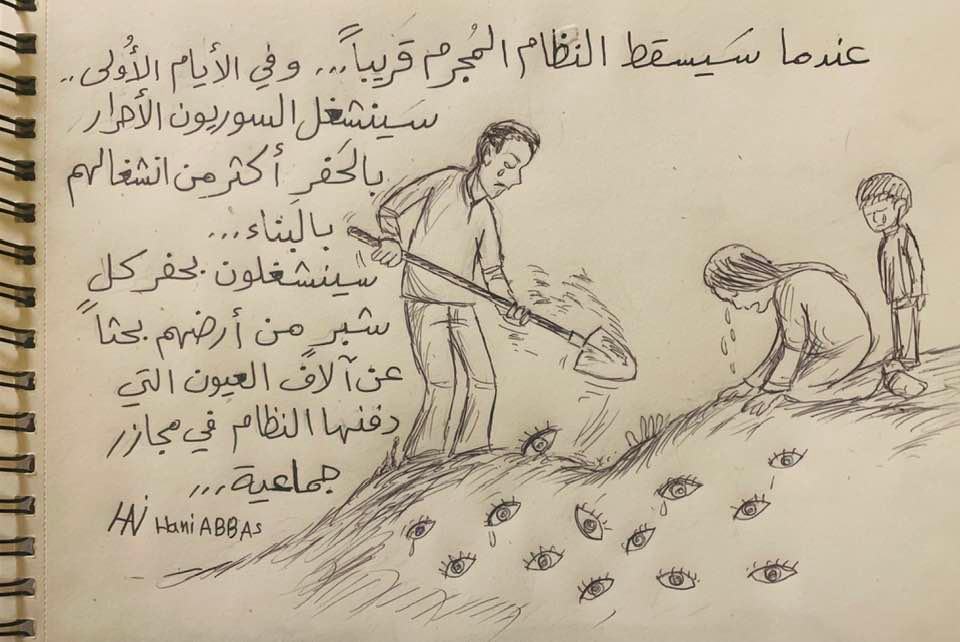 عندما سَيسقط النظام المُجرم قريباً... وفي الأيام الأُولى..
سَينشغل السوريون الأحرار
بالحَفرِ أكثر مِن انشغالهم
بالبناء...
سينشغلون بحفر كل
شبر من أرضهم بحثاً
عن آلاف العيون التي
دفنها النظام في مجازر
جماعية...
HANI Hani ABBAs